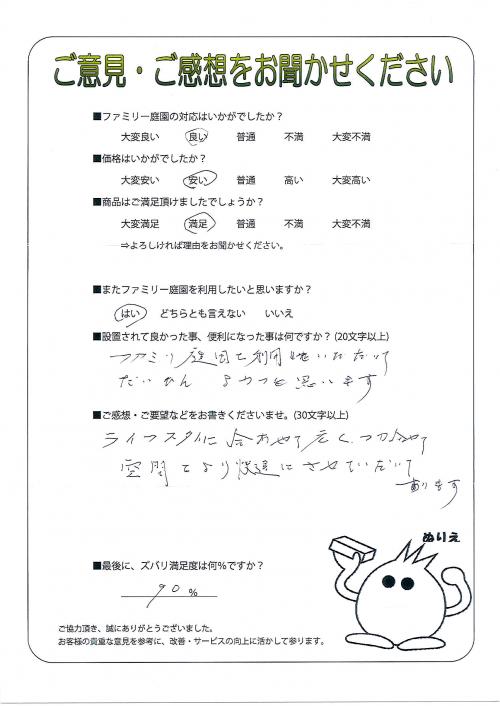 ご意見・ご感想をお聞かせください
■ファミリー庭園の対応はいかがでしたか？
大変良い 良い 普通 不満 大変不満
■価格はいかがでしたか？
大変安い 安い 普通 高い 大変高い
■商品はご満足頂けましたでしょうか？
大変満足 満足 普通 不満 大変不満
⇒よろしければ理由をお聞かせください。
■またファミリー庭園を利用したいと思いますか？
はい どちらとも言えない いいえ
■設置されて良かった事、便利になった事は何ですか？(20文字以上)
ファミリ庭園を利用させていただいて
だいへん よかったと思います
■ご感想・ご要望などをお書きくださいませ。(30文字以上)
ライフスタイルに合わせて広く
空間をより快適にさせていただいて
おります
ぬりえ
■最後に、ズバリ満足度は何％ですか？
90％
ご協力頂き、誠にありがとうございました。
お客様の貴重な意見を参考に、改善・サービスの向上に活かして参ります。